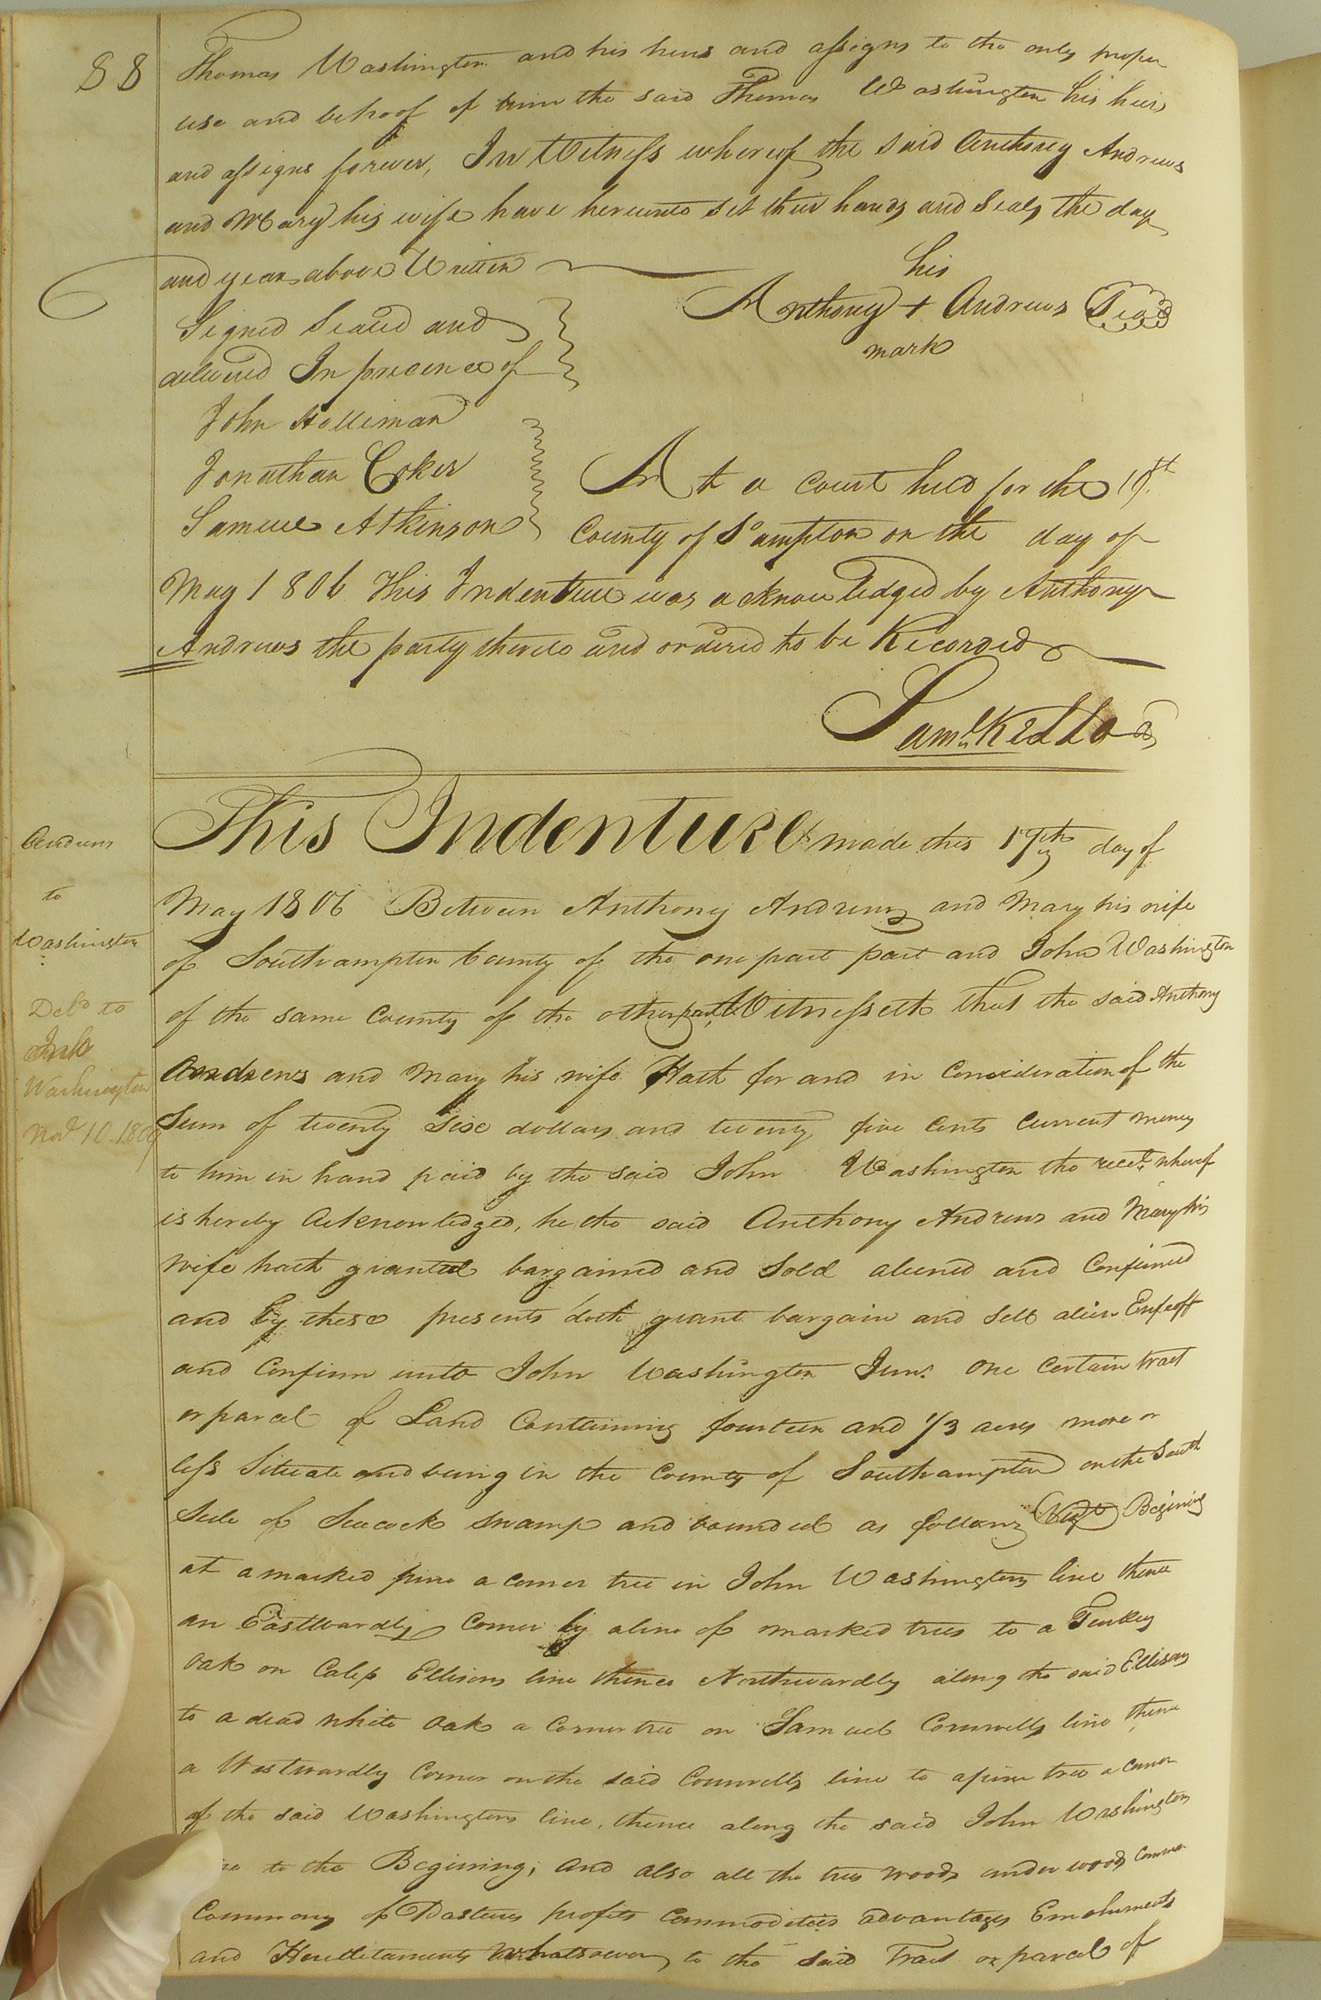 88
Thomas Washington and his heirs and assigns to the only proper
use and behoof of him the said Thomas Washington his heirs
and assigns forever, In Witness whereof the said Anthony Andrews
and Mary his wife have hereunto set their hands and Seals the day
and year above Written
his
Anthony + Andrews Seal
mark
Signed Sealed and
delivered In presence of
John Holliman
Jonathan Coker
Samuel Atkinson
At a Court held for the 19th
County of S°ampton on the day of
May 1806 This Indenture was acknowledged by Anthony
Andrews the party thereto and ordered to be Recorded
Saml. Kello
Andrews
to
Washington
Deld to
Jno
Washington
1809
This Indenture made this 17th day of
May 1806 Between Anthony Andrews and Mary his wife
of Southampton County of the one part part and John Washington
of the same County of the other part Witnesseth that the said Anthony
Andrews and Mary his wife Hath for and in Consideration of the
Sum of twenty Six dollars and twenty five Cents Current money
to him in hand paid by the said John Washington the recet. whereof
is hereby Acknowledged, he the said Anthony Andrews and Mary his
wife hath granted bargained and Sold aliened and Confirmed
and by these presents doth grant bargain and Sell alien Enfeoff
and Confirm unto John Washington Junr. one certain tract
or parcel of Land Containing fourteen and 1/3 acres more or
less Situate and being in the County of Southampton on the South
Side of Seacock Swamp and bounded as follows Begining
at a marked pine a corner tree in John Washingtons line thence
an Eastwardly Corner by a line of marked trees to a Turkey
Oak on Caleb Ellisons line thence Northwardly along the said Ellisons
to a dead white Oak a Corner tree on Samuel Cornwells line thence
a Westwardly Corner on the said Counwells line to a pine tree a corner
of the said Washingtons line, thence along the said John Washingtons
to the Begining; and also all the trees woods under woods
Commons of Pastures profits commodities advantages Emoluments
and Hereditaments Whatsoever to the said Tract or parcel of